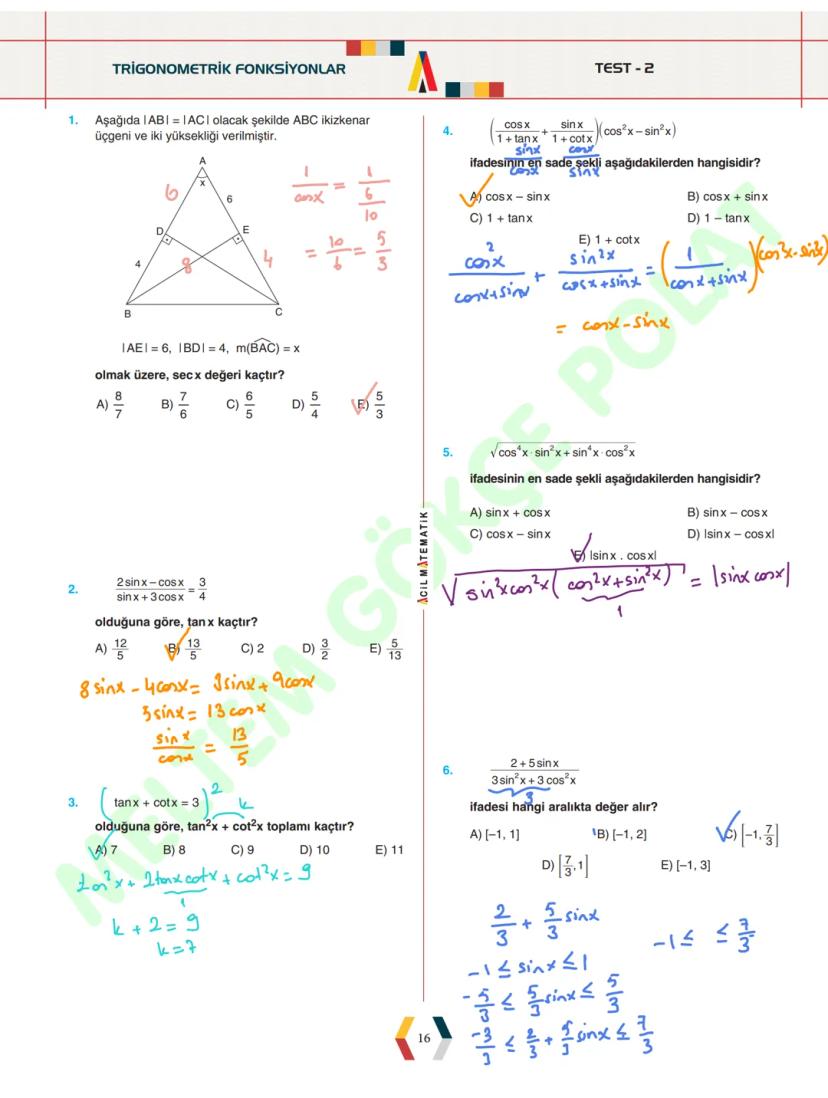 TRİGONOMETRİK FONKSİYONLAR
TEST - 2
1. Aşağıda |AB| = |AC| olacak şekilde ABC ikizkenar
üçgeni ve iki yüksekliği verilmiştir.
A
x
6
6
D
E
4
8
4
B
C
1/cosx = 1/(6/10)
= 10/6 = 5/3
|AE| = 6, |BD| = 4, m(BAC) = x
olmak üzere, sec x değeri kaçtır?
A) 8/7 B) 7/6 C) 6/5 D) 5/4 E) 5/3
2. (2 sin x – cos x)/(sin x + 3 cos x) = 3/4
olduğuna göre, tan x kaçtır?
A) 12/5 B) 13/5 C) 2 D) 3/2 E) 5/13
8 sinx - 4cosx = 3sinx + 9cosx
5sinx = 13 cosx
sinx/cosx = 13/5
3. (tan x + cot x = 3)² k
olduğuna göre, tan²x + cot²x toplamı kaçtır?
A) 7 B) 8 C) 9 D) 10 E) 11
tan²x + 2tanxcotx + cot²x = 9
1
k + 2 = 9
k = 7
4. (cos x/(1 + tan x) + sin x/(1 + cot x))(cos²x – sin²x)
sinx/cosx cosx/sinx
ifadesinin en sade şekli aşağıdakilerden hangisidir?
A) cos x – sin x B) cos x + sin x
C) 1 + tan x D) 1 – tan x
E) 1 + cot x
cos²x/(cosx+sinx) + sin²x/(cosx+sinx) = (1/(cosx+sinx))(cos²x-sin²x)
= cosx - sinx
5. √(cos⁴x · sin²x + sin⁴x · cos²x)
ifadesinin en sade şekli aşağıdakilerden hangisidir?
A) sin x + cos x B) sin x – cos x
C) cos x – sin x D) |sin x – cos x|
E) |sin x . cos x|
√(sin²xcos²x(cos²x+sin²x)) = |sinx cosx|
1
6. (2 + 5 sin x)/(3 sin²x + 3 cos²x)
3
ifadesi hangi aralıkta değer alır?
A) [–1, 1] B) [–1, 2] C) [–1, 7/3]
D) [7/3, 1] E) [–1, 3]
2/3 + 5/3 sinx
-1 ≤ ≤ 7/3
-1 ≤ sinx ≤ 1
-5/3 ≤ 5/3 sinx ≤ 5/3
-3/3 ≤ 2/3 + 5/3 sinx ≤ 7/3
ACİL MATEMATİK
MELTEM GÖKÇE POLAT
16